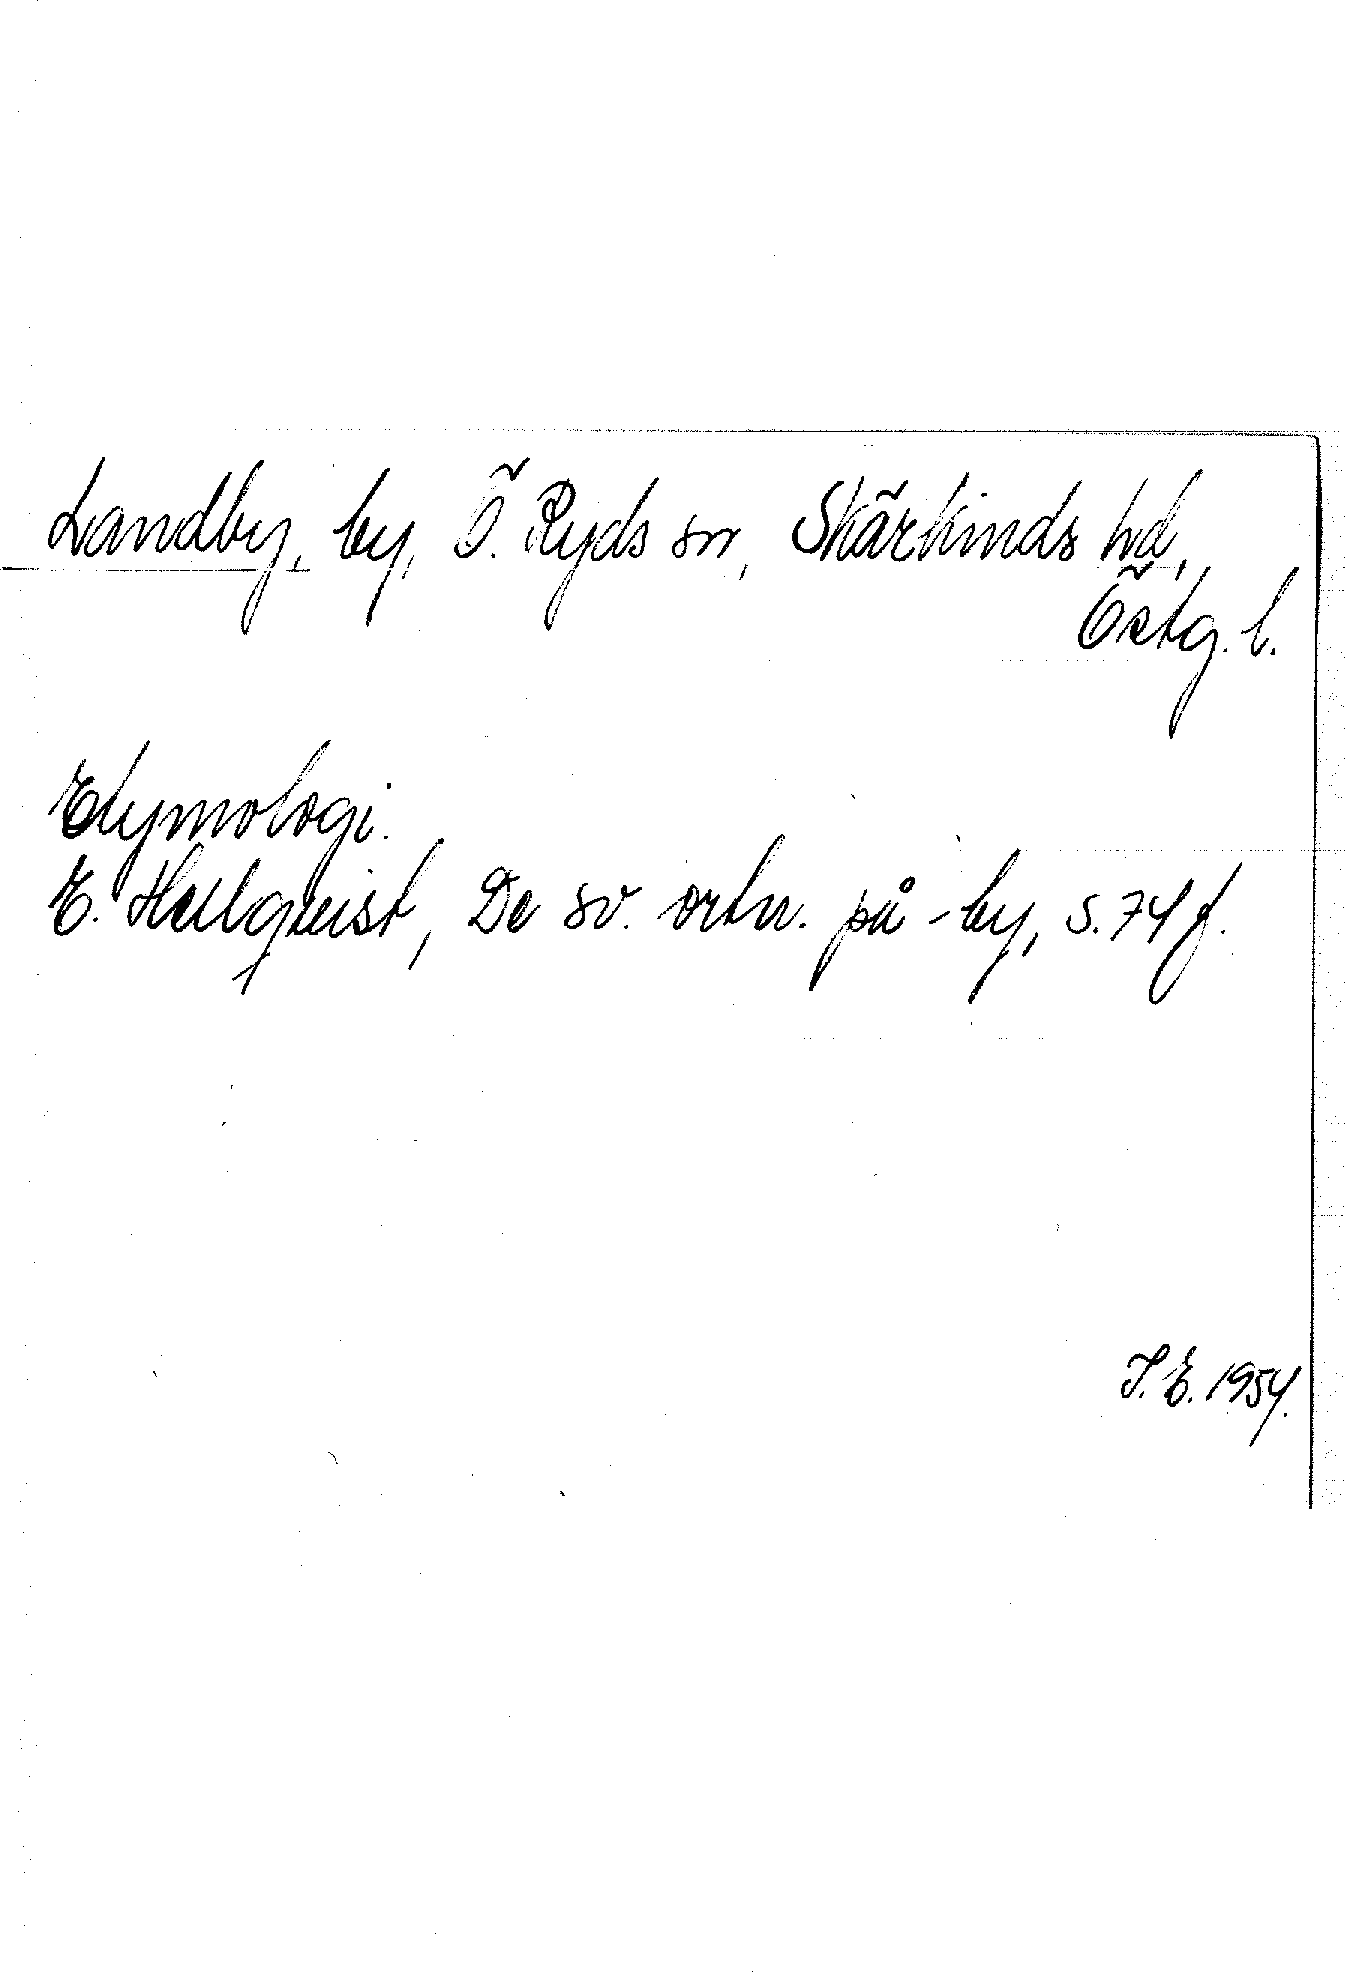 Landby, by, Ö. Ryds sn, Skärkinds hd,
Östg. l.
Etymologi.
E. Hellquist, De sv. ortn. på -by, s. 74 f.
I. E. 1954.